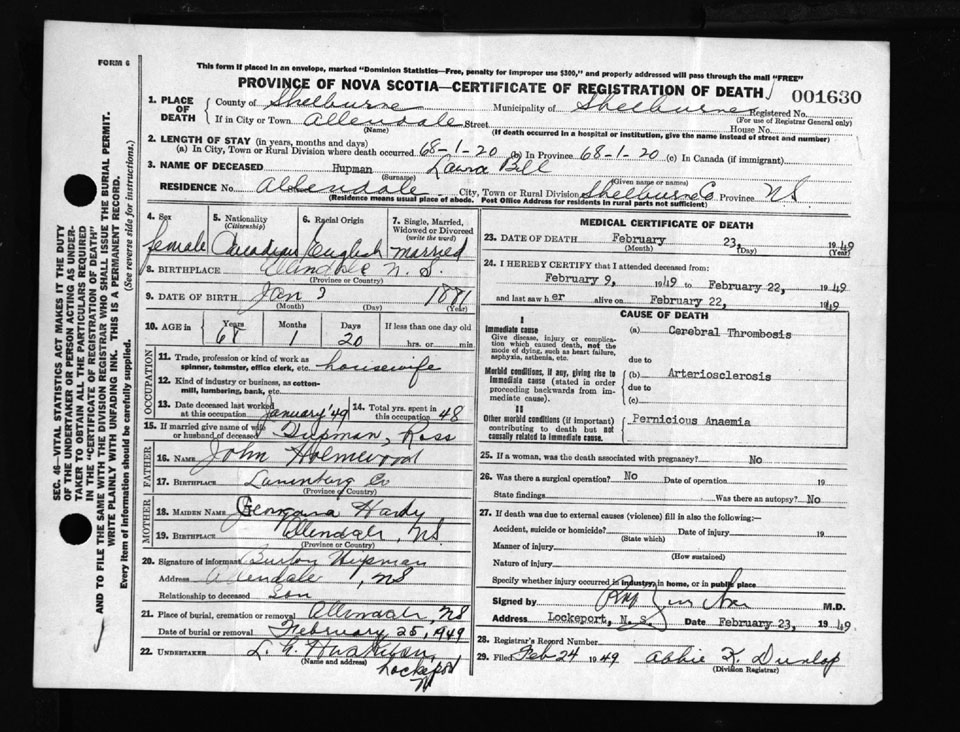 FORM 6
This form if placed in an envelope, marked "Dominion Statistics—Free, penalty for improper use $300," and properly addressed will pass through the mail "FREE"
PROVINCE OF NOVA SCOTIA—CERTIFICATE OF REGISTRATION OF DEATH
001630
SEC. 46—VITAL STATISTICS ACT MAKES IT THE DUTY
OF THE UNDERTAKER OR PERSON ACTING AS UNDER-
TAKER TO OBTAIN ALL THE PARTICULARS REQUIRED
IN THE "CERTIFICATE OF REGISTRATION OF DEATH"
AND TO FILE THE SAME WITH THE DIVISION REGISTRAR WHO SHALL ISSUE THE BURIAL PERMIT.
WRITE PLAINLY WITH UNFADING INK. THIS IS A PERMANENT RECORD.
Every item of information should be carefully supplied. (See reverse side for instructions.)
1. PLACE OF DEATH
County of Shelburne Municipality of Shelburne Registered No.
(For use of Registrar General only)
If in City or Town Allendale Street House No.
(Name) (If death occurred in a hospital or institution, give the name instead of street and number)
2. LENGTH OF STAY (in years, months and days)
(a) In City, Town or Rural Division where death occurred 68-1-20 (b) In Province 68-1-20 (c) In Canada (if immigrant)
3. NAME OF DECEASED Hupman Laura Bell
(Surname) (Given name or names)
RESIDENCE No. Allendale City, Town or Rural Division Shelburne Co Province NS
(Residence means usual place of abode. Post Office Address for residents in rural parts not sufficient)
4. Sex female
5. Nationality (Citizenship) Canadian
6. Racial Origin English
7. Single, Married, Widowed or Divorced (write the word) Married
8. BIRTHPLACE Allendale N.S.
(Province or Country)
9. DATE OF BIRTH Jan 3 1881
(Month) (Day) (Year)
10. AGE in Years 68 Months 1 Days 20 If less than one day old hrs. or min.
OCCUPATION
11. Trade, profession or kind of work as
spinner, teamster, office clerk, etc. housewife
12. Kind of industry or business, as cotton-
mill, lumbering, bank, etc.
13. Date deceased last worked
at this occupation January '49
14. Total yrs. spent
in this occupation 48
15. If married give name of wife
or husband of deceased Hupman, Ross
FATHER
16. NAME John Holmewood
17. BIRTHPLACE Lunenburg Co
(Province or Country)
MOTHER
18. MAIDEN NAME Georgina Hardy
19. BIRTHPLACE Allendale, NS.
(Province or Country)
20. Signature of informant Burton Hupman
Address Allendale, NS
Relationship to deceased son
21. Place of burial, cremation or removal Allendale, NS
Date of burial or removal February 25, 1949
22. UNDERTAKER L.
(Name and address) Lockeport
MEDICAL CERTIFICATE OF DEATH
23. DATE OF DEATH February 23, 1949
(Month) (Day) (Year)
24. I HEREBY CERTIFY that I attended deceased from:
February 9, 1949 to February 22, 1949
and last saw her alive on February 22, 1949
CAUSE OF DEATH
I
Immediate cause
Give disease, injury or complica-
tion which caused death, not the
mode of dying, such as heart failure,
asphyxia, asthenia, etc.
(a) Cerebral Thrombosis
due to
Morbid conditions, if any, giving rise to
immediate cause (stated in order
proceeding backwards from im-
mediate cause).
(b) Arteriosclerosis
due to
(c)
II
Other morbid conditions (if important)
contributing to death but not
causally related to immediate cause.
Pernicious Anaemia
25. If a woman, was the death associated with pregnancy? No
26. Was there a surgical operation? No Date of operation 19
State findings Was there an autopsy? No
27. If death was due to external causes (violence) fill in also the following:—
Accident, suicide or homicide? Date of injury 19
(State which)
Manner of injury
(How sustained)
Nature of injury
Specify whether injury occurred in industry, in home, or in public place
Signed by M.D.
Address Lockeport, N. S. Date February 23, 1949
28. Registrar's Record Number
29. Filed Feb 24 1949 Abbie K. Dunlop
(Division Registrar)